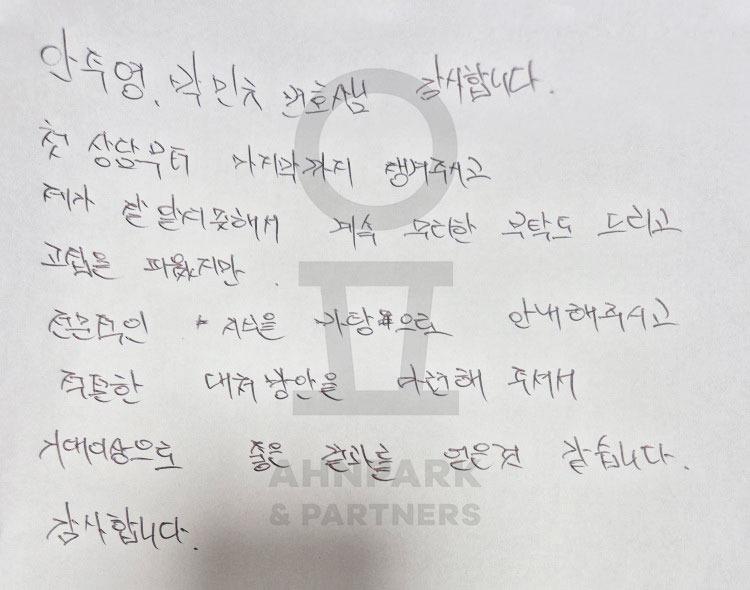 안주영, 박민규 변호사님 감사합니다.
첫 상담부터 마지막까지 챙겨주시고
제가 잘 알지 못해서 계속 무리한 부탁도 드리고
고집을 피웠지만
전문적인 지식을 바탕으로 안내해주시고
적절한 대처방안을 마련해 주셔서
기대이상으로 좋은 결과를 얻은것 같습니다.
AHNPARK
& PARTNERS
감사합니다.